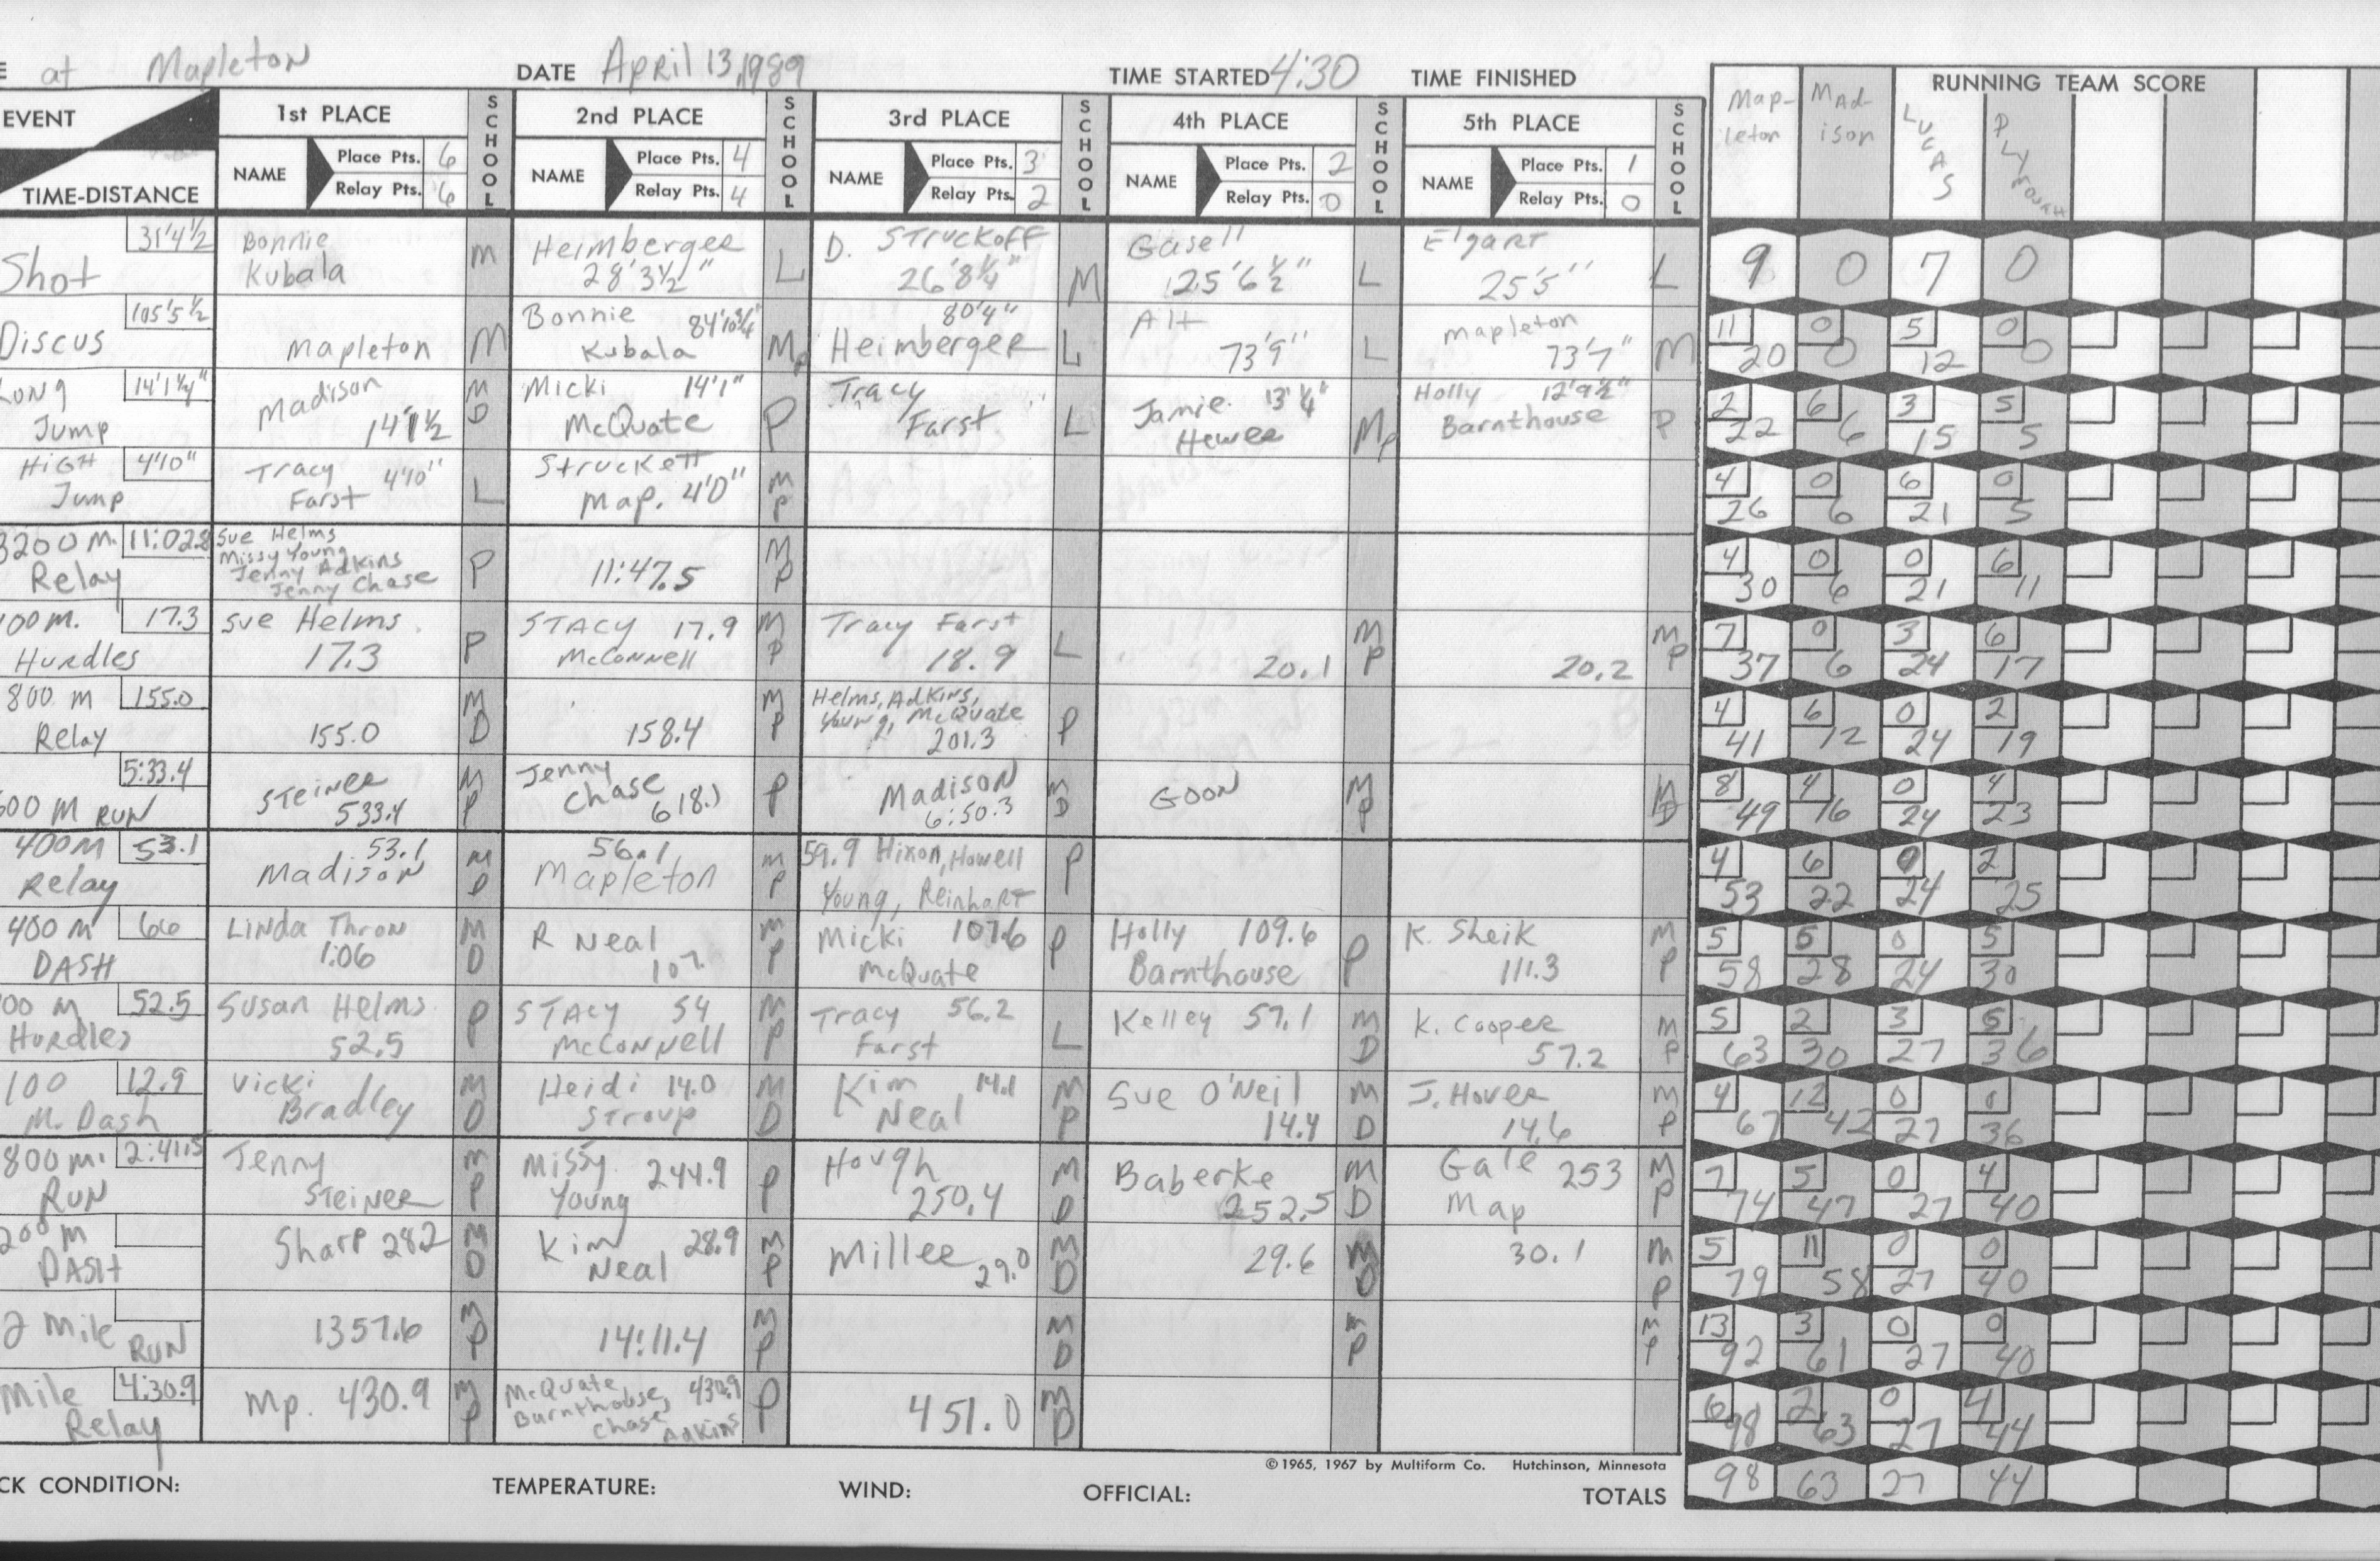 E at Mapleton DATE April 13, 1989 TIME STARTED 4:30 TIME FINISHED
RUNNING TEAM SCORE
Mapleton Madison LUCAS PLYMOUTH
EVENT TIME-DISTANCE
1st PLACE NAME Place Pts. 6 Relay Pts. 6 SCHOOL
2nd PLACE NAME Place Pts. 4 Relay Pts. 4 SCHOOL
3rd PLACE NAME Place Pts. 3 Relay Pts. 2 SCHOOL
4th PLACE NAME Place Pts. 2 Relay Pts. 0 SCHOOL
5th PLACE NAME Place Pts. 1 Relay Pts. 0 SCHOOL
Shot 31'4½ Bonnie Kubala M Heimberger 28'3½" L D. Struckoff 26'8¼" M Gasell 25'6½" L Elgart 25'5" L 9 0 7 0
Discus 105'5½ Mapleton M Bonnie Kubala 84'10¾" Mp Heimberger 80'4" L Alt 73'9" L Mapleton 73'7" M 11 20 0 0 5 12 0 0
Long Jump 14'1¼" Madison 14'1½ MD Micki McQuate 14'1" P Tracy Farst L Jamie Hewer 13'¼" Mp Holly Barnthouse 12'9½" P 2 22 6 6 3 15 5 5
HIGH Jump 4'10" Tracy Farst 4'10" L Struckett Map. 4'0" MP 4 26 0 6 6 21 0 5
3200 M. Relay 11:02.8 Sue Helms Missy Young Jenny Adkins Jenny Chase P 11:47.5 MP 4 30 0 6 0 21 6 11
100 M. Hurdles 17.3 Sue Helms 17.3 P STACY McConnell 17.9 MP Tracy Farst 18.9 L 20.1 MP 20.2 MP 7 37 0 6 3 24 6 17
800 m Relay 155.0 155.0 MD 158.4 MP Helms, Adkins, Young, McQuate 201.3 P 4 41 6 12 0 24 2 19
600 M RUN 5:33.4 Steiner 533.4 MP Jenny Chase 618.1 P Madison 6:50.3 MD GOON MP MD 8 49 4 16 0 24 4 23
400 M Relay 53.1 Madison 53.1 MD Mapleton 56.1 MP 59.9 Hixon, Howell Young, Reinhart P 4 53 6 22 0 24 2 25
400 M DASH 66 Linda Thron 1:06 MD R Neal 107. MP Micki McQuate 107.6 P Holly Barnthouse 109.6 P K. Sheik 111.3 MP 5 58 6 28 0 24 5 30
00 M Hurdles 52.5 Susan Helms 52.5 P STACY McConnell 54 MP Tracy Farst 56.2 L Kelley 57.1 MD K. Cooper 57.2 MP 5 63 2 30 3 27 6 36
100 M. Dash 12.9 Vicki Bradley MD Heidi Stroup 14.0 MD Kim Neal 14.1 MP Sue O'Neil 14.4 MD J. Hover 14.6 MP 4 67 12 42 0 27 0 36
800 m. RUN 2:41.5 Jenny Steiner MP Missy Young 244.9 P Hough 250.4 MD Baberke 252.5 MD Gale Map 253 MP 7 74 5 47 0 27 4 40
200 m DASH Sharp 28.2 MD Kim Neal 28.9 MP Miller 29.0 MD 29.6 MD 30.1 MP 5 79 11 58 0 27 0 40
2 Mile RUN 1357.6 MP 14:11.4 MP MD MP MP 13 92 3 61 0 27 0 40
Mile Relay 4:30.9 Mp. 430.9 MP McQuate Barnthouse, Chase Adkins 430.9 P 451.0 MD 6 98 2 63 0 27 4 44
©1965, 1967 by Multiform Co. Hutchinson, Minnesota
CK CONDITION: TEMPERATURE: WIND: OFFICIAL: TOTALS 98 63 27 44